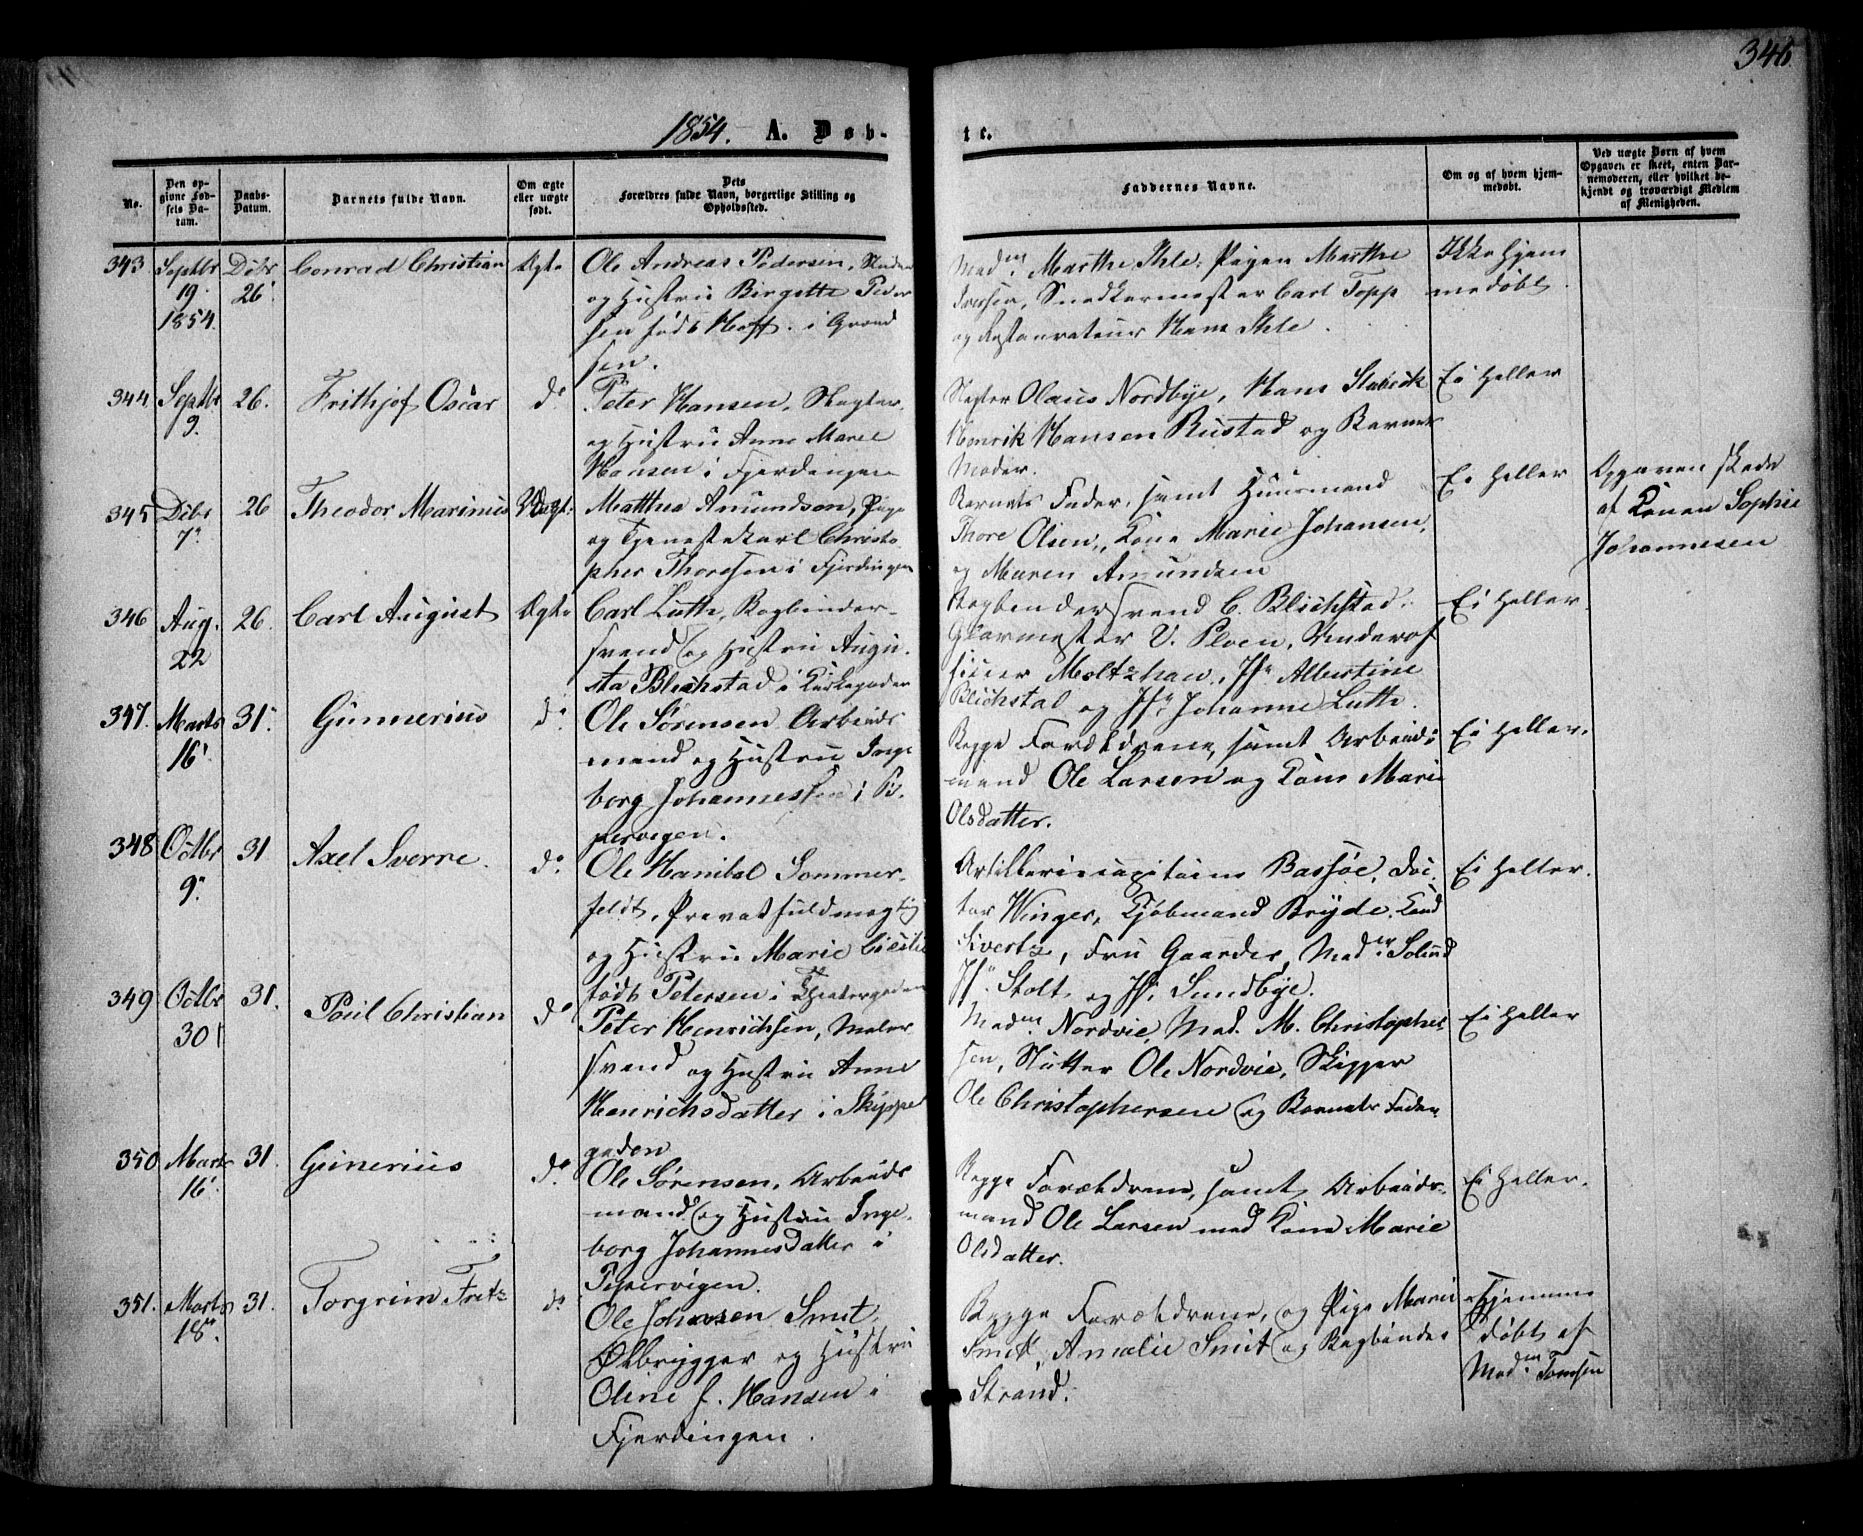 346
1854. A. Døb-
te.
No.
Den op-
givne Fød-
sels Da-
tum.
Daabs-
Datum.
Barnets fulde Navn.
Om ægte
eller uægte
født.
Dets
Forældres fulde Navn, borgerlige Stilling og
Opholdssted.
Faddernes Navne.
Om og af hvem hjem-
medøbt.
Ved uægte Børn af hvem
Opgaven er skeet, enten Bar-
nemoderen, eller hvilket be-
kjendt og troværdigt Medlem
af Menigheden.
343 Septbr
19.
1854.
Dcbr
26
Conrad Christian
Ægte
Ole Andreas Pedersen,
og Hustru Birgitte Peder
sen født Hoff. i Grønd
sen.
Madm. Marthe Ihle, Pigen Marthe
Iversen, Snedkermester Carl Topp
og Restaurateur Hans Ihle.
Ikke hjem
medøbt.
344 Septbr
9.
26.
Frithjof Oscar
do
Peter Hansen, Slagter,
og Hustru Anne Marie
Hansen i Fjerdingen
Slagter Olaus Nordbye, Hans Stabæk
Henrik Hansen Rustad og Barnets
Moder.
Ei heller
345 Dcbr
7.
26
Theodor Marinus
Uægte
Matthea Amundsen, Pige
og Tjenestekarl Christo
pher Thoresen i Fjerdingen
Barnets Fader, samt Huusmand
Thore Olsen, Kone Marie Johansen,
og Maren Amundsen
Ei heller
Opgaven skede
af Konen Sophie
Johannesen
346 Aug.
22
26.
Carl August
Ægte
Carl Luth, Bogbinder-
svend og Hustru Augu-
sta Blichstad i Kirkegaden
Bogbindersvend C. Blichstad,
Glarmester V. Ploen, Underof
ficier Moltzhau, Jfr. Albertine
Blichstad og Jfr. Johanne Luth.
Ei heller.
347. Marts
16
31.
Gunnerius
do
Ole Sørensen Arbeids
mand og Hustru Inge
borg Johannessen i Pi-
pervigen.
Begge Forældrene, samt Arbeids
mand Ole Larsen og Kone Marie
Olsdatter.
Ei heller.
348 Octbr
9.
31
Axel Sverre.
do
Ole Hanibal Sommer-
feldt, Privatfuldmægtig
og Hustru Marie Cicilie
født Petersen i Theatergaden
Artillericapitaine Bassøe, Doc-
tor Winger, Kjøbmand Bryde, Cand
Sivertz, Fru Gaarder, Madm. Solund
Jfr. Stolt og Jfr. Sundbye.
Ei heller.
349 Octbr
30
31.
Poul Christian
do
Peter Henrichsen, Maler
svend og Hustru Anne
Henrichsdatter i Skipper
gaden
Madm. Nordvie, Mad. M. Christopher
sen, Slutter Ole Nordvie, Skipper
Ole Christophersen og Barnets Fader
Ei heller
350 Marts
16
31.
Gunerius
do
Ole Sørensen, Arbeids
mand og Hustru Inge-
borg Johannesdatter i
Pipervigen.
Begge Forældrene, samt Arbeids-
mand Ole Larsen med Kone Marie
Olsdatter.
Ei heller.
351. Marts
18
31.
Torgrim Fritz
do
Ole Johansen Smit,
Ølbrygger og Hustru
Oline f. Hansen i
Fjerdingen.
Begge Forældrene, og Pige Marie
Smit, Amalie Smit og Bogbinder
Strand.
Hjemme
døbt af
Madm. Tomsen